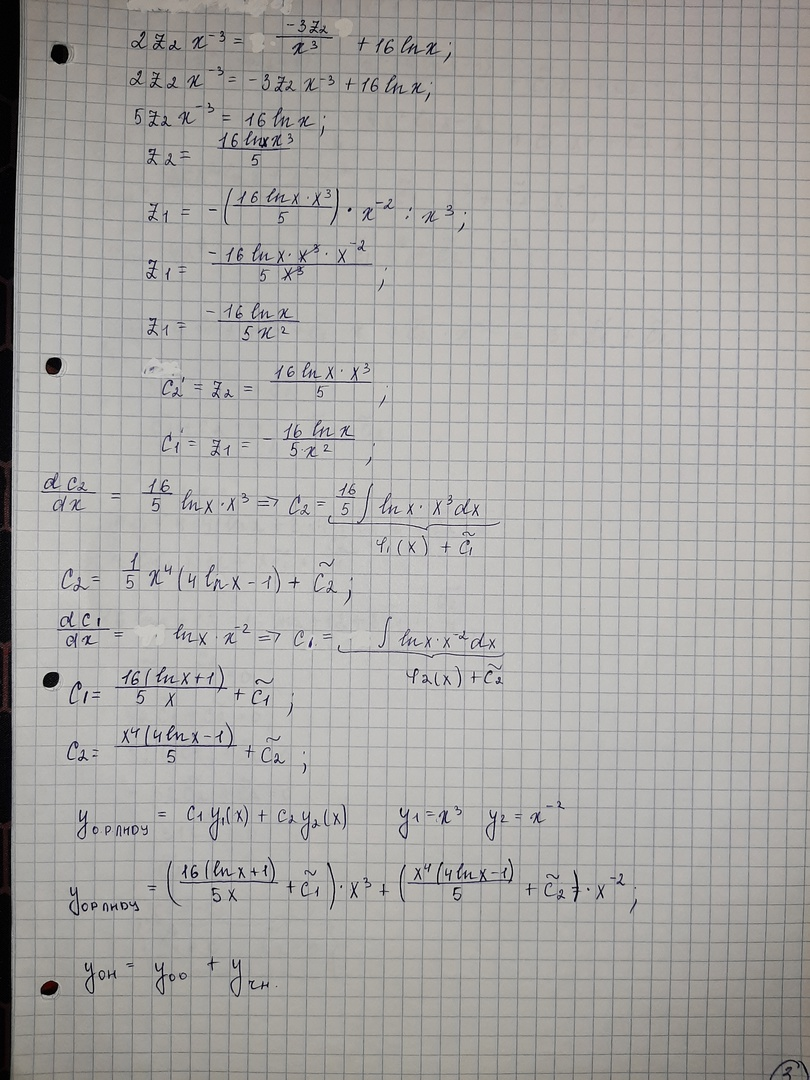 2z₂x⁻³ = -3z₂/x³ + 16 ln x;
2z₂x⁻³ = -3z₂x⁻³ + 16 ln x;
5z₂x⁻³ = 16 ln x;
z₂ = 16 ln x x³/5
z₁ = -(16 ln x · x³/5) · x⁻² : x³;
z₁ = -16 ln x · x³ · x⁻²/5 x³;
z₁ = -16 ln x/5x²
C₂' = z₂ = 16 ln x · x³/5;
C₁' = z₁ = - 16 ln x/5·x²;
dC₂/dx = 16/5 ln x · x³ => C₂ = 16/5 ∫ ln x · x³dx
φ₁(x) + C̃₁
C₂ = 1/5 x⁴(4 ln x - 1) + C̃₂;
dC₁/dx = ln x · x⁻² => C₁ = ∫ ln x · x⁻²dx
φ₂(x) + C̃₂
C₁ = 16(ln x + 1)/5 x + C̃₁;
C₂ = x⁴(4 ln x - 1)/5 + C̃₂;
yорлнду = C₁y₁(x) + C₂y₂(x) y₁ = x³ y₂ = x⁻²
yорлнду = (16(ln x + 1)/5x + C̃₁) · x³ + (x⁴(4 ln x - 1)/5 + C̃₂) · x⁻²;
yон = yоо + yчн.